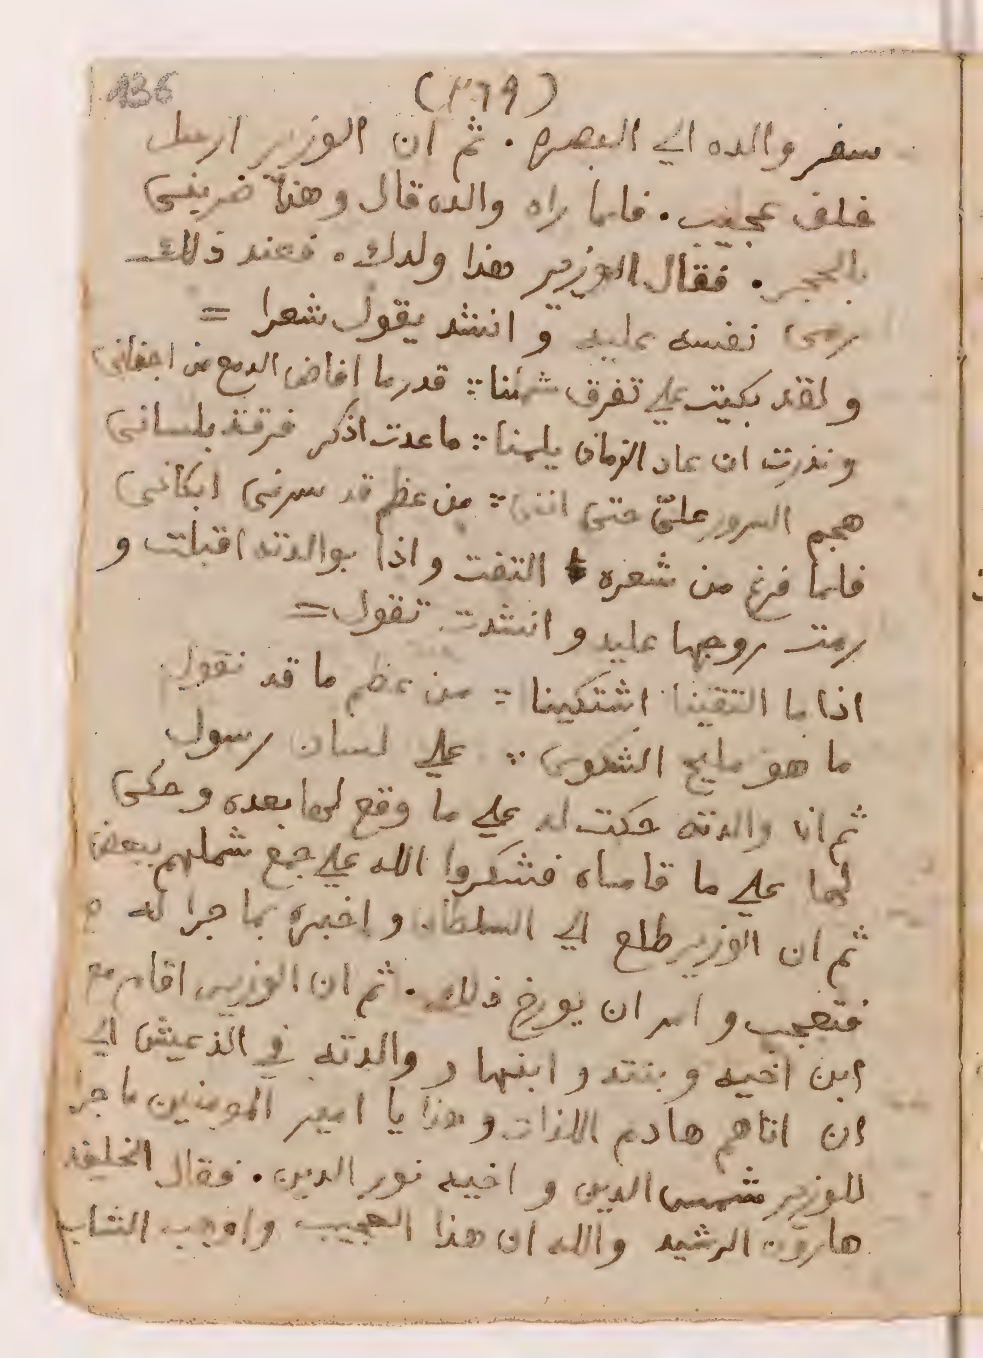 136
(٣٦٩)
سفر والده الي البصره . ثم ان الوزير ارسل
خلف عجيب . فلما راه والده قال وهذا ضربني
بالحجر . فقال الوزير هذا ولدك . فعند ذلك
رمى نفسه عليه و انشد يقول شعرا =
و لقد بكيت علي تفرق شملنا :: قدر ما افاض الدمع من اجفاني
و نذرت ان عاد الزمان يلمنا :: ما عدت اذكر فرقة بلساني
هجم السرور عليّ حتى انني :: من عظم قد سرني ابكاني
فلما فرغ من شعره التفت و اذا بوالدته اقبلت و
رمت روحها عليه و انشدت تقول =
اذا ما التقينا اشتكينا :: من عظم ما قد نقول
ما هو مليح الشكوى :: علي لسان رسول
ثم ان والدته حكت له علي ما وقع لها بعده و حكى
لها علي ما قاساه فشكروا الله علي جمع شملهم ببعض
ثم ان الوزير طلع الي السلطان و اخبره بما جرا له
فتعجب و امر ان يورخ ذلك . ثم ان الوزير اقام مع
ابن اخيه و بنته و ابنها و والدته في الذ عيش الي
ان اتاهم هادم اللذات و هذا يا امير المومنين ما جرا
للوزير شمس الدين و اخيه نور الدين . فقال الخليفه
هارون الرشيد والله ان هذا العجيب واوهب الشاب